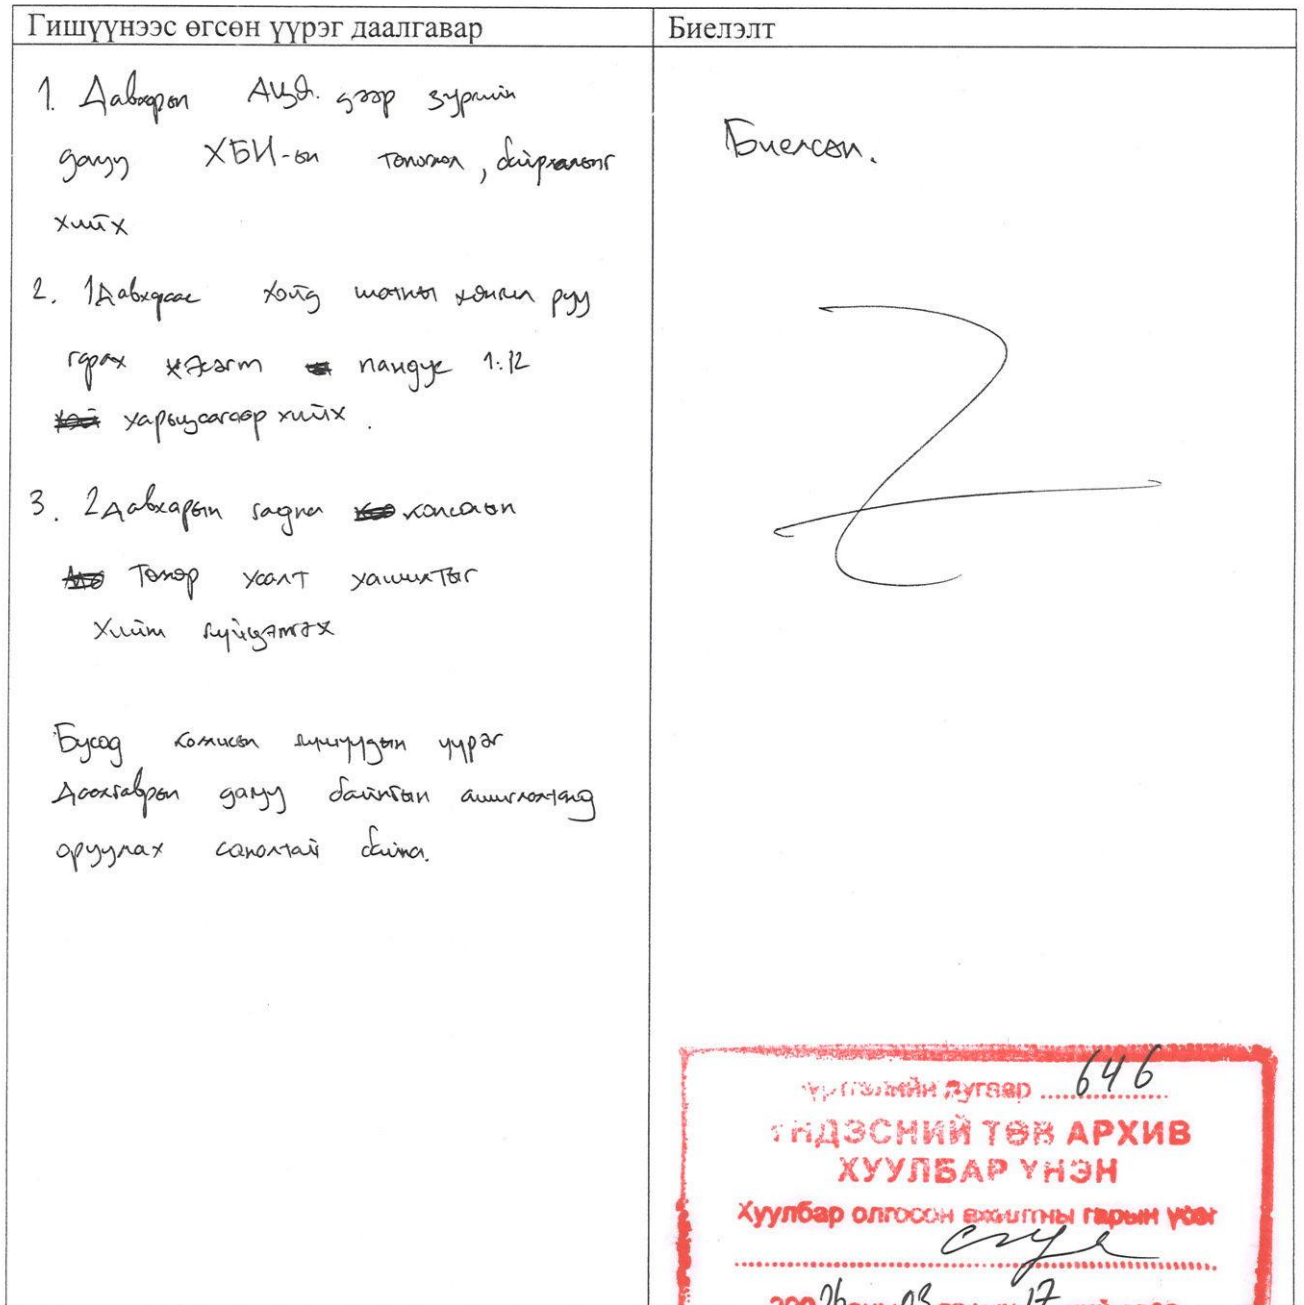 Гишүүнээс өгсөн үүрэг даалгавар
Биелэлт
1. Давхрын АЦӨ. дээр зургийн
дагуу ХБИ-ын тоноглол, байрлалыг
хийх
2. 1давхраас хойд шатны хонгил руу
гарах хэсэгт пандус 1:12
харьцаагаар хийх.
3. 2давхарын гадна консолын
Төмөр хаалт хашилтыг
хийж гүйцэтгэх
Бусад комисын гишүүдын үүрэг
Даалгаврын дагуу байнгын ашиглалтанд
оруулах саналтай байна.
Биелсэн.
дугаар 646
ҮНДЭСНИЙ ТӨВ АРХИВ
ХУУЛБАР ҮНЭН
Хуулбар олгосон ажилтны гарын үсэг
26 03 17